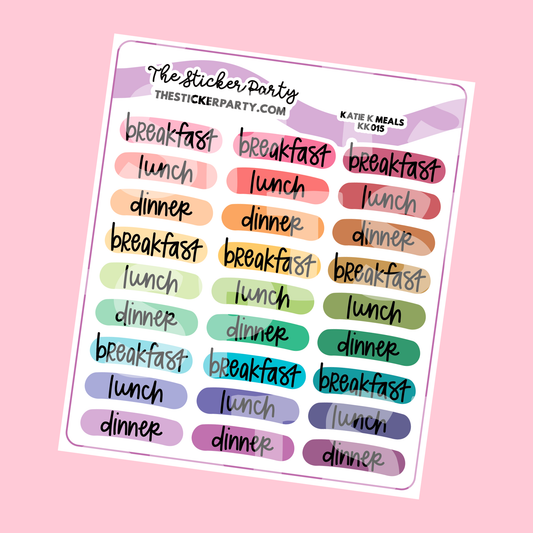 The Sticker Party
THESTICKERPARTY.COM
KATIE K MEALS
KK015
breakfast breakfast breakfast
lunch lunch lunch
dinner dinner dinner
breakfast breakfast breakfast
lunch lunch lunch
dinner dinner dinner
breakfast breakfast breakfast
lunch lunch lunch
dinner dinner dinner